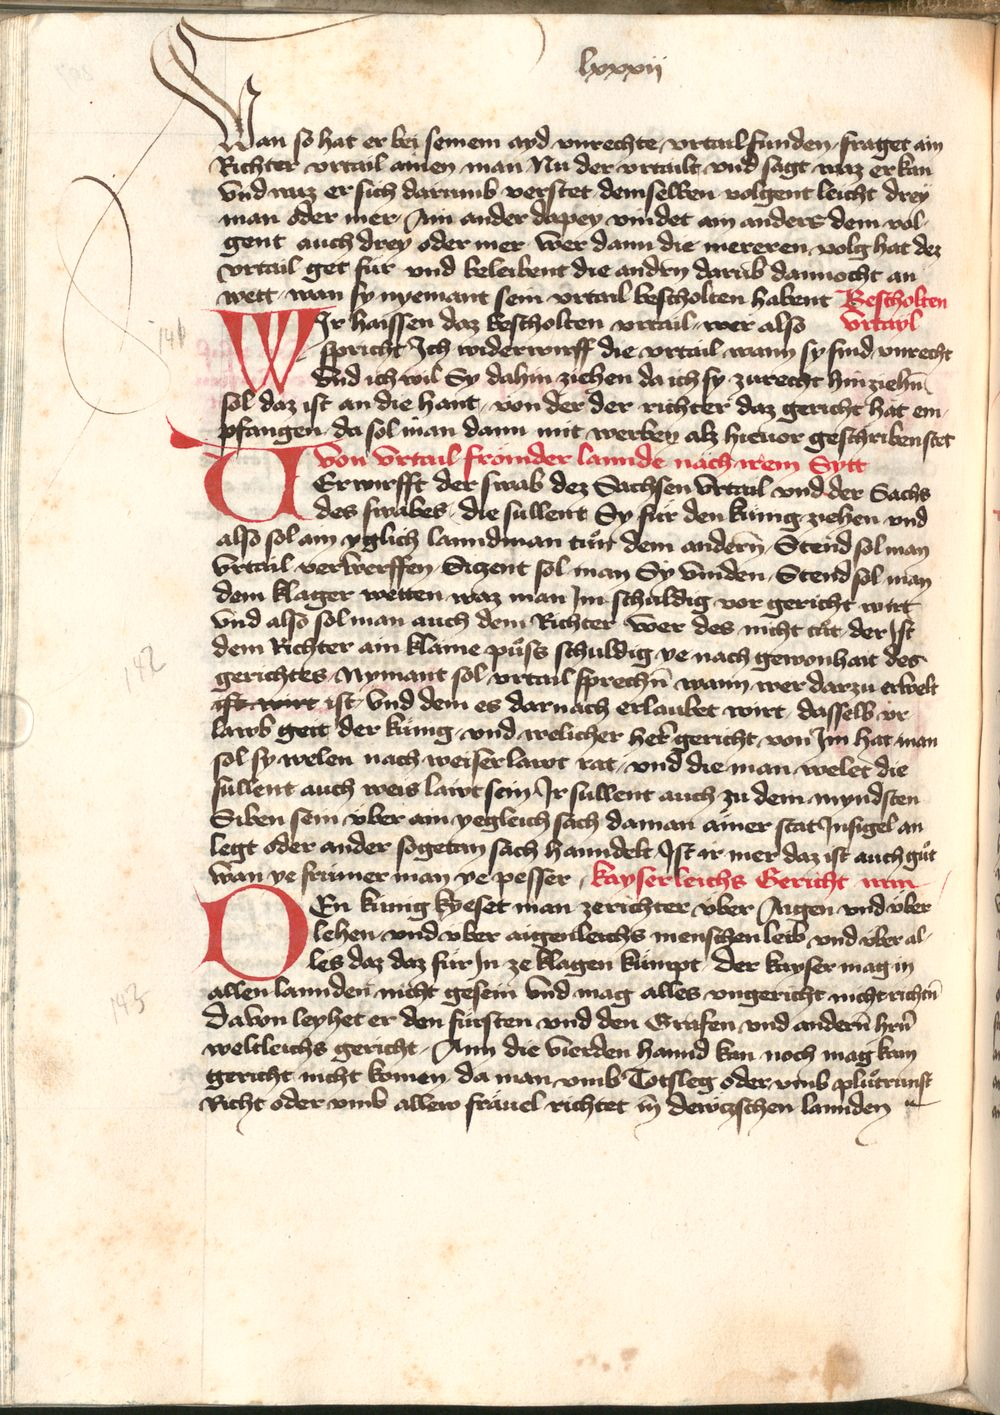 lxxxvii
Wan so hat er bei seinem ayd vnrechte vrtail funden fraget ain
Richter vrtail ainen man Nu der vrtailt vnd sagt waz er kan
Vnd waz er sich darumb verstet demselben volgent leicht drey
man oder mer Ain ander dapey vindet ain anders dem vol-
gent auch drey oder mer wer dann die mereren volg hat dez
vrtail get für vnd beleibent die andrn darüb dannocht an
wett wan sy nyemant sein vrtail bescholten habent Bescholten
WIr haissen daz bescholten vrtail wer also vrtayl
spricht Ich widerwirff die vrtail wann sy sind vnrecht
Vnd ich wil Sy dahin ziehen da ich sy zurecht hin ziehn
sol daz ist an die hant von der der richter daz gericht hat em
pfangen da sol man dann mit werben alz hieuor geschriben stet
von Vrtail frömder lannde nach irem Sytt
VErwirfft der swab dez Sachsen Vrtail vnd der Sachs
des swabes die sullent Sy für den kunig ziehen vnd
also sol ain yglich lanndman tün dem andern Stend sol man
Vrtail verwerffen Siczent sol man Sy vinden Stend sol man
dem klager wetten waz man Im schuldig vor gericht wirt
Vnd also sol man auch dem Richter wer des nicht tüt der Ist
dem Richter ain klaine püss schuldig ye nach gewonhait des
gerichtes Nymant sol vrtail sprechn wann wer darzu erwelt
ist wirt ist Vnd dem es darnach erlaubet wirt dasselb vr
lawb geit der künig vnd welicher her gericht von Im hat man
sol sy welen nach weiser lawt rat vnd die man welet die
süllent auch weis lawt sein Ir sullent auch zu dem myndsten
Siben sein über ain yegleich sach da man ainer stat Insigel an
legt oder ander sogetan sach hanndelt Ist ir mer daz ist auch güt
wan ye frümer man ye pesser kayserleichs Gericht
DEn kunig kyeset man zerichter über Aigen vnd über
lehen vnd über aigenleichs menschen leib vnd über al-
les daz daz für In ze klagen kümpt der kayser mag in
allen lannden nicht gesein Vnd mag alles vngericht nicht richtn
Dauon leyhet er den fürsten vnd den Grafen vnd andern hrn
weltleichs gericht Ann die vierden hannd kan noch mag kain
gericht nicht komen da man vmb Totsleg oder vmb plütrunst
Richt oder vmb allew fräuel richtet in dewtzschen lannden
141
142
143